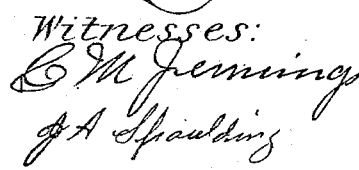 Witnesses:
C M Jennings
J A Spaulding